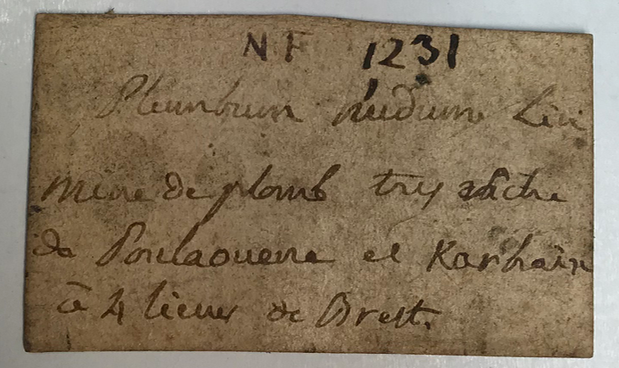 NF 1231
Plumbum nudum Lin
mine de plomb tres riche
de Poulaouene et Karhain
à 4 lieues de Brest.